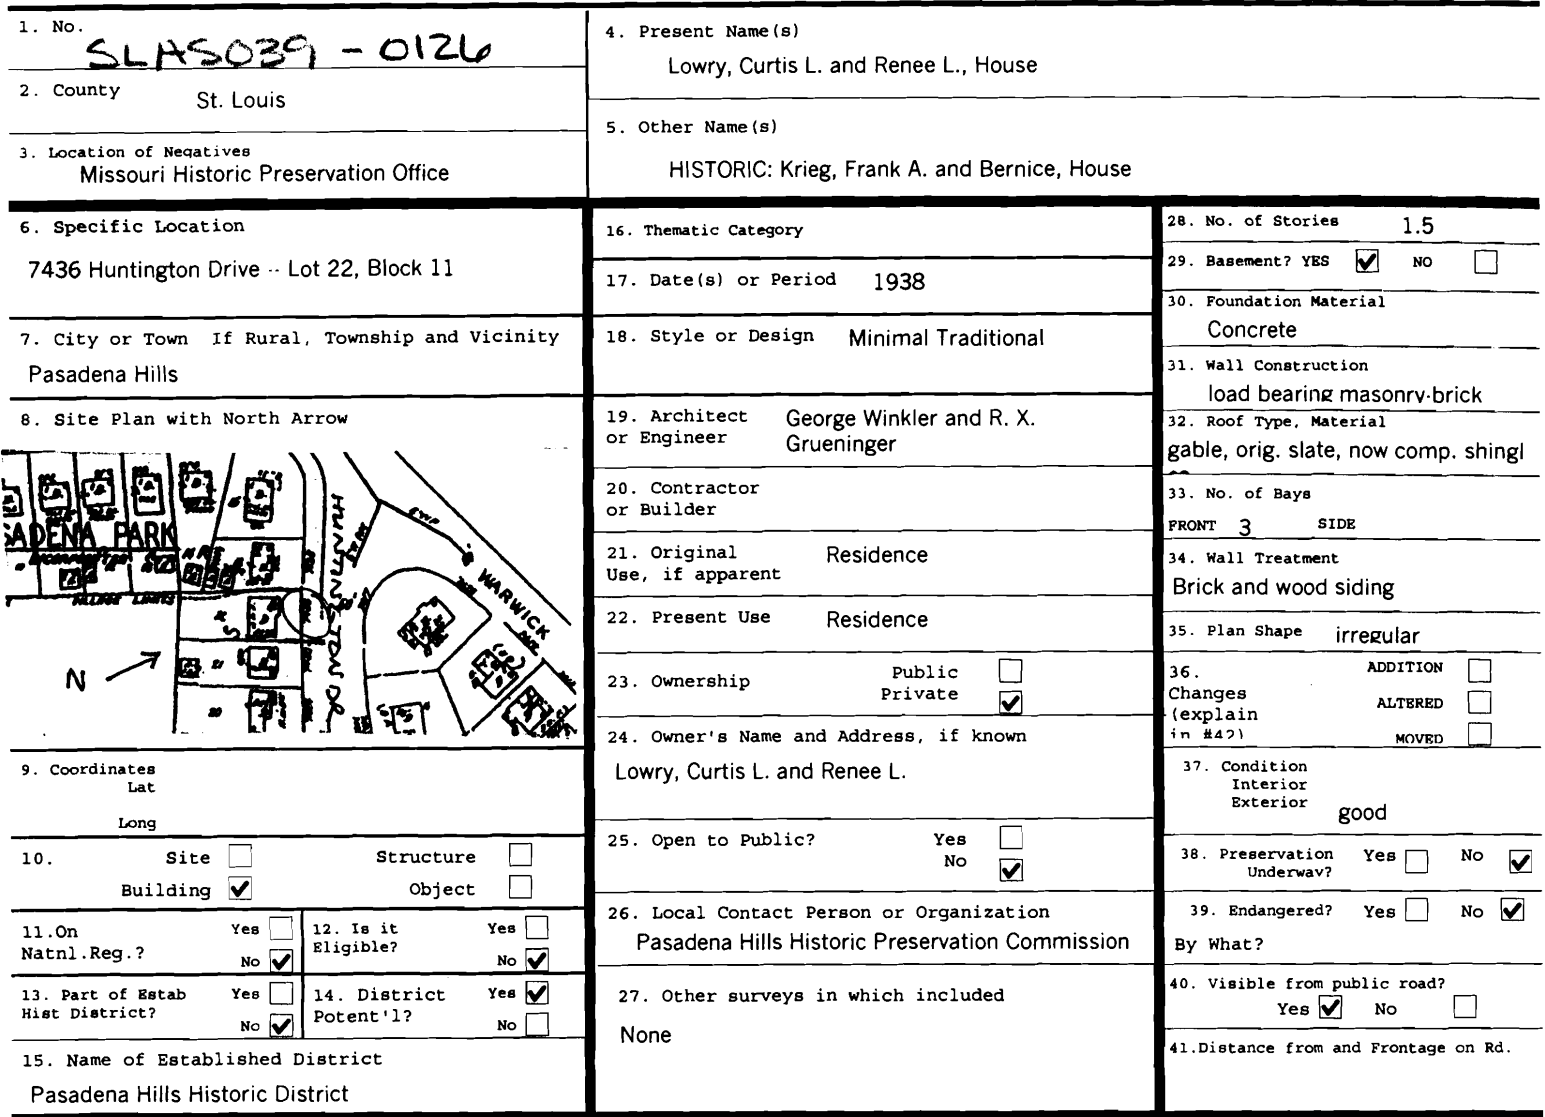 1. No.
SLAS039 - 0126
2. County
St. Louis
3. Location of Negatives
Missouri Historic Preservation Office
4. Present Name(s)
Lowry, Curtis L. and Renee L., House
5. Other Name(s)
HISTORIC: Krieg, Frank A. and Bernice, House
6. Specific Location
7436 Huntington Drive -- Lot 22, Block 11
7. City or Town If Rural, Township and Vicinity
Pasadena Hills
8. Site Plan with North Arrow
ADENA PARK
HUNTINGTON DR
WARWICK
N
21
20
9. Coordinates
Lat
Long
10. Site Structure
Building ✔ Object
11.On
Natnl.Reg.?
Yes
No ✔
12. Is it
Eligible?
Yes
No ✔
13. Part of Estab
Hist District?
Yes
No ✔
14. District
Potent'l?
Yes ✔
No
15. Name of Established District
Pasadena Hills Historic District
16. Thematic Category
17. Date(s) or Period 1938
18. Style or Design Minimal Traditional
19. Architect
or Engineer
George Winkler and R. X.
Grueninger
20. Contractor
or Builder
21. Original
Use, if apparent
Residence
22. Present Use Residence
23. Ownership
Public
Private ✔
24. Owner's Name and Address, if known
Lowry, Curtis L. and Renee L.
25. Open to Public? Yes
No ✔
26. Local Contact Person or Organization
Pasadena Hills Historic Preservation Commission
27. Other surveys in which included
None
28. No. of Stories 1.5
29. Basement? YES ✔ NO
30. Foundation Material
Concrete
31. Wall Construction
load bearing masonry-brick
32. Roof Type, Material
gable, orig. slate, now comp. shingl
33. No. of Bays
FRONT 3 SIDE
34. Wall Treatment
Brick and wood siding
35. Plan Shape irregular
36.
Changes
(explain
in #42)
ADDITION
ALTERED
MOVED
37. Condition
Interior
Exterior
good
38. Preservation
Underway?
Yes No ✔
39. Endangered? Yes No ✔
By What?
40. Visible from public road?
Yes ✔ No
41.Distance from and Frontage on Rd.